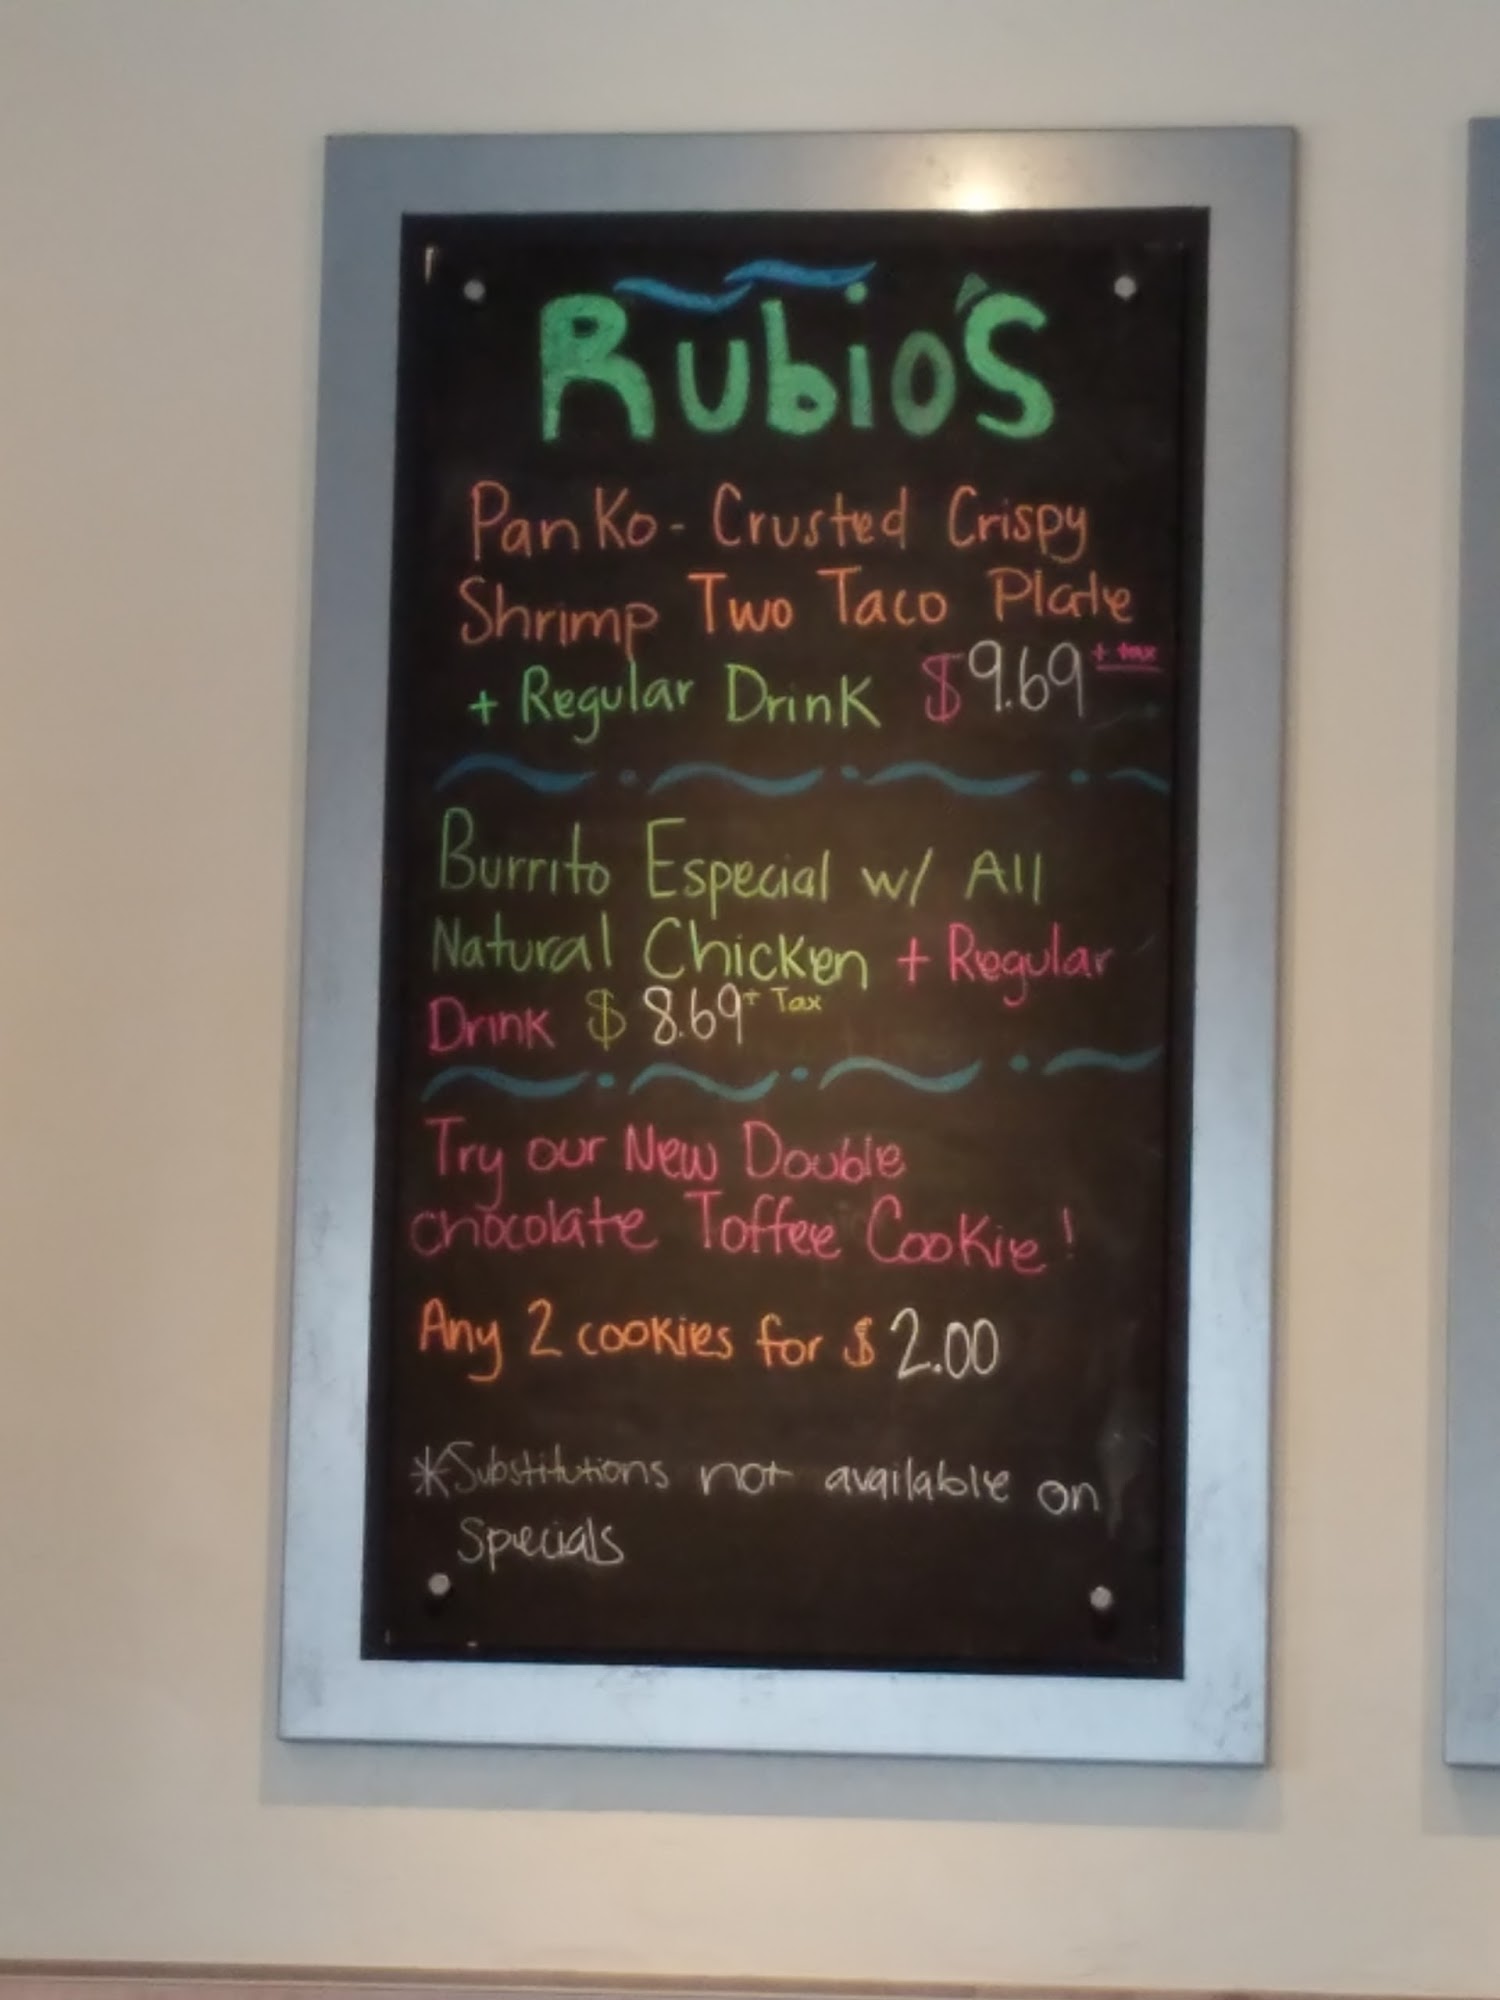 Rubio's
Panko-Crusted Crispy
Shrimp Two Taco Plate
+ Regular Drink $9.69 + tax
Burrito Especial w/ All
Natural Chicken + Regular
Drink $8.69 + Tax
Try our New Double
chocolate Toffee Cookie!
Any 2 cookies for $2.00
*Substitutions not available on
Specials